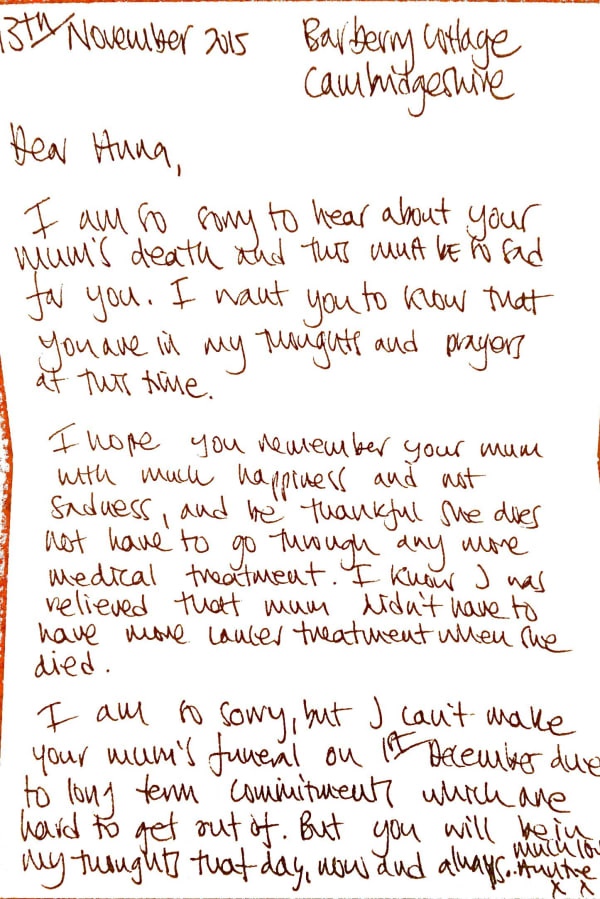 13th November 2015 Barberry Cottage
Cambridgeshire
Dear Anna,
I am so sorry to hear about your
mum's death and this must be so sad
for you. I want you to know that
you are in my thoughts and prayers
at this time.
I hope you remember your mum
with much happiness and not
sadness, and be thankful she does
not have to go through any more
medical treatment. I know I was
relieved that mum didn't have to
have more cancer treatment when she
died.
I am so sorry, but I can't make
your mum's funeral on 1st December due
to long term commitments which are
hard to get out of. But you will be in
my thoughts that day, now and always.. much lov
x x